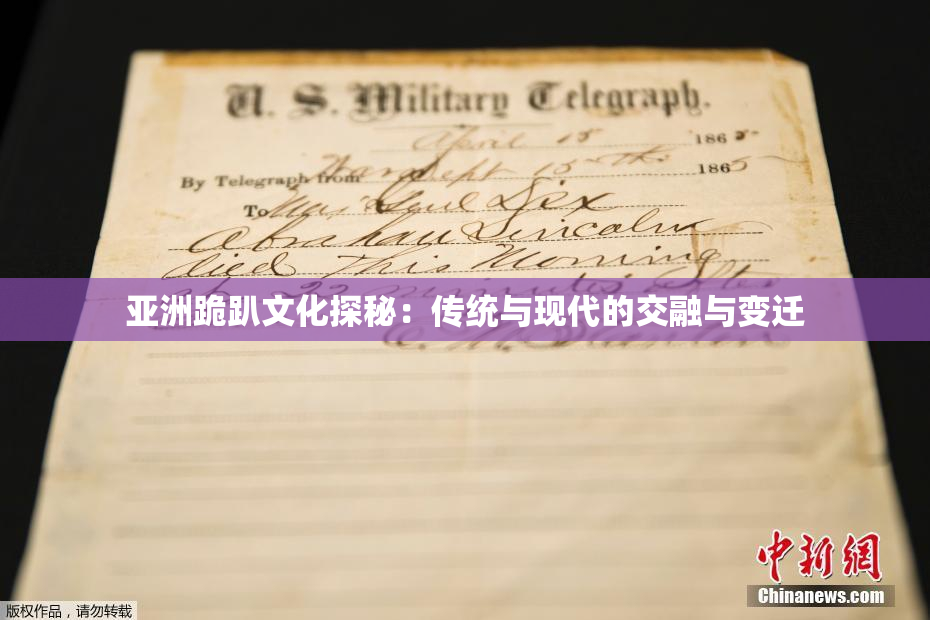 U. S. Military Telegraph.
April 15 1865
By Telegraph from War Dept 15th 1865
To Maj Genl Dix
Abraham Lincoln
died This Morning
at 22 minutes after
亚洲跪趴文化探秘：传统与现代的交融与变迁
E. M. Stanton
中新网
Chinanews.com
版权作品，请勿转载